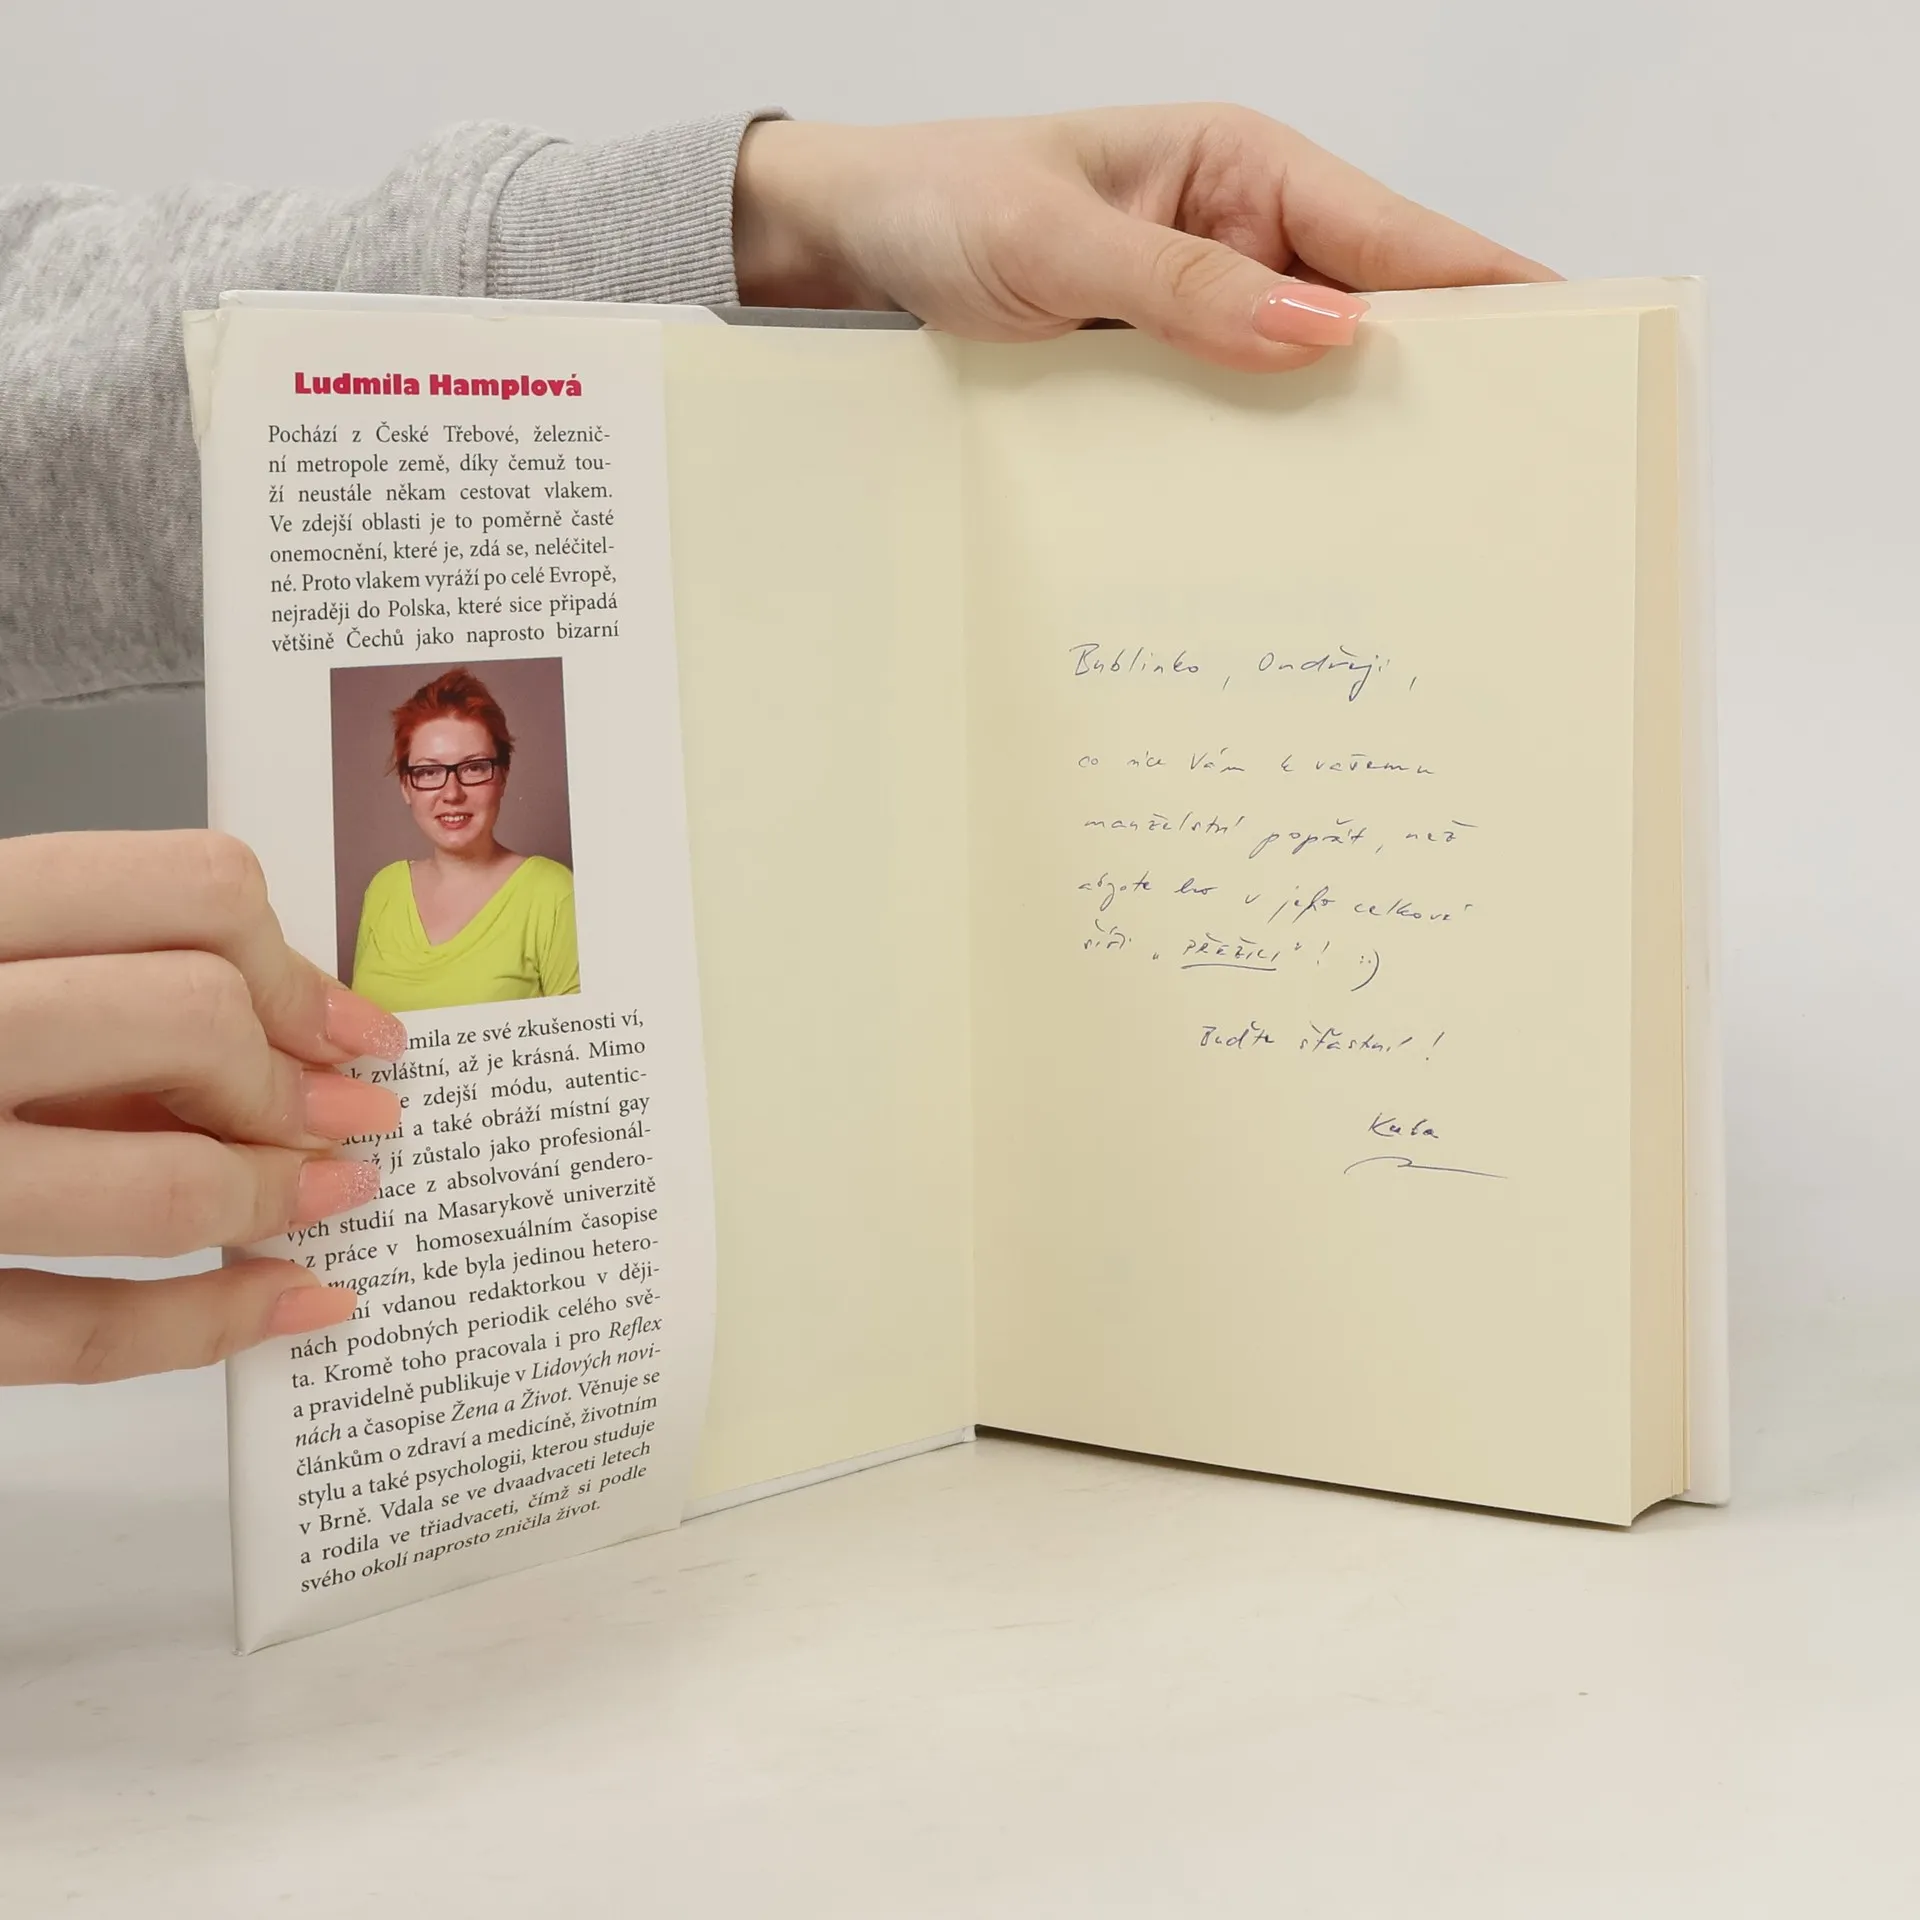 Ludmila Hamplová
Pochází z České Třebové, železnič-
ní metropole země, díky čemuž tou-
ží neustále někam cestovat vlakem.
Ve zdejší oblasti je to poměrně časté
onemocnění, které je, zdá se, neléčitel-
né. Proto vlakem vyráží po celé Evropě,
nejraději do Polska, které sice připadá
většině Čechů jako naprosto bizarní
mila ze své zkušenosti ví,
k zvláštní, až je krásná. Mimo
zdejší módu, autentic-
a také obráží místní gay
jí zůstalo jako profesionál-
z absolvování gendero-
vých studií na Masarykově univerzitě
z práce v homosexuálním časopise
magazín, kde byla jedinou hetero-
ní vdanou redaktorkou v ději-
nách podobných periodik celého svě-
ta. Kromě toho pracovala i pro Reflex
a pravidelně publikuje v Lidových novi-
nách a časopise Žena a Život. Věnuje se
článkům o zdraví a medicíně, životním
stylu a také psychologii, kterou studuje
v Brně. Vdala se ve dvaadvaceti letech
a rodila ve třiadvaceti, čímž si podle
svého okolí naprosto zničila život.
Bublinko, Ondřeji,
co více Vám k vašemu
manželství popřát, než
abyste ho v jeho celkové
šíři „PŘEŽILI“! :)
Buďte šťastni!
Kuba